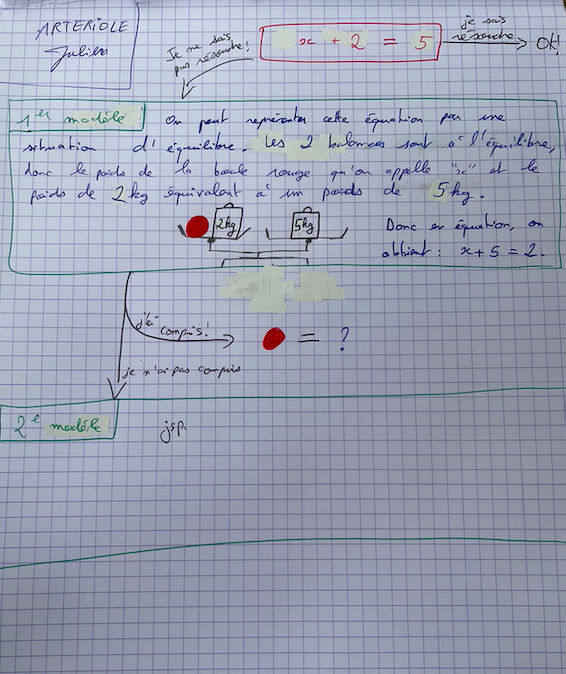 ARTERIOLE
Julien
Je ne sais
pas résoudre!
x + 2 = 5
je sais
résoudre
OK!
1er modèle
On peut représenter cette équation par une
situation d'équilibre. Les 2 balances sont à l'équilibre,
donc le poids de la boule rouge qu'on appelle "x" et le
poids de 2kg équivalent à un poids de 5kg.
2kg
5kg
Donc en équation, on
obtient : x + 5 = 2.
j'ai compris!
= ?
je n'ai pas compris
2e modèle
jsp.